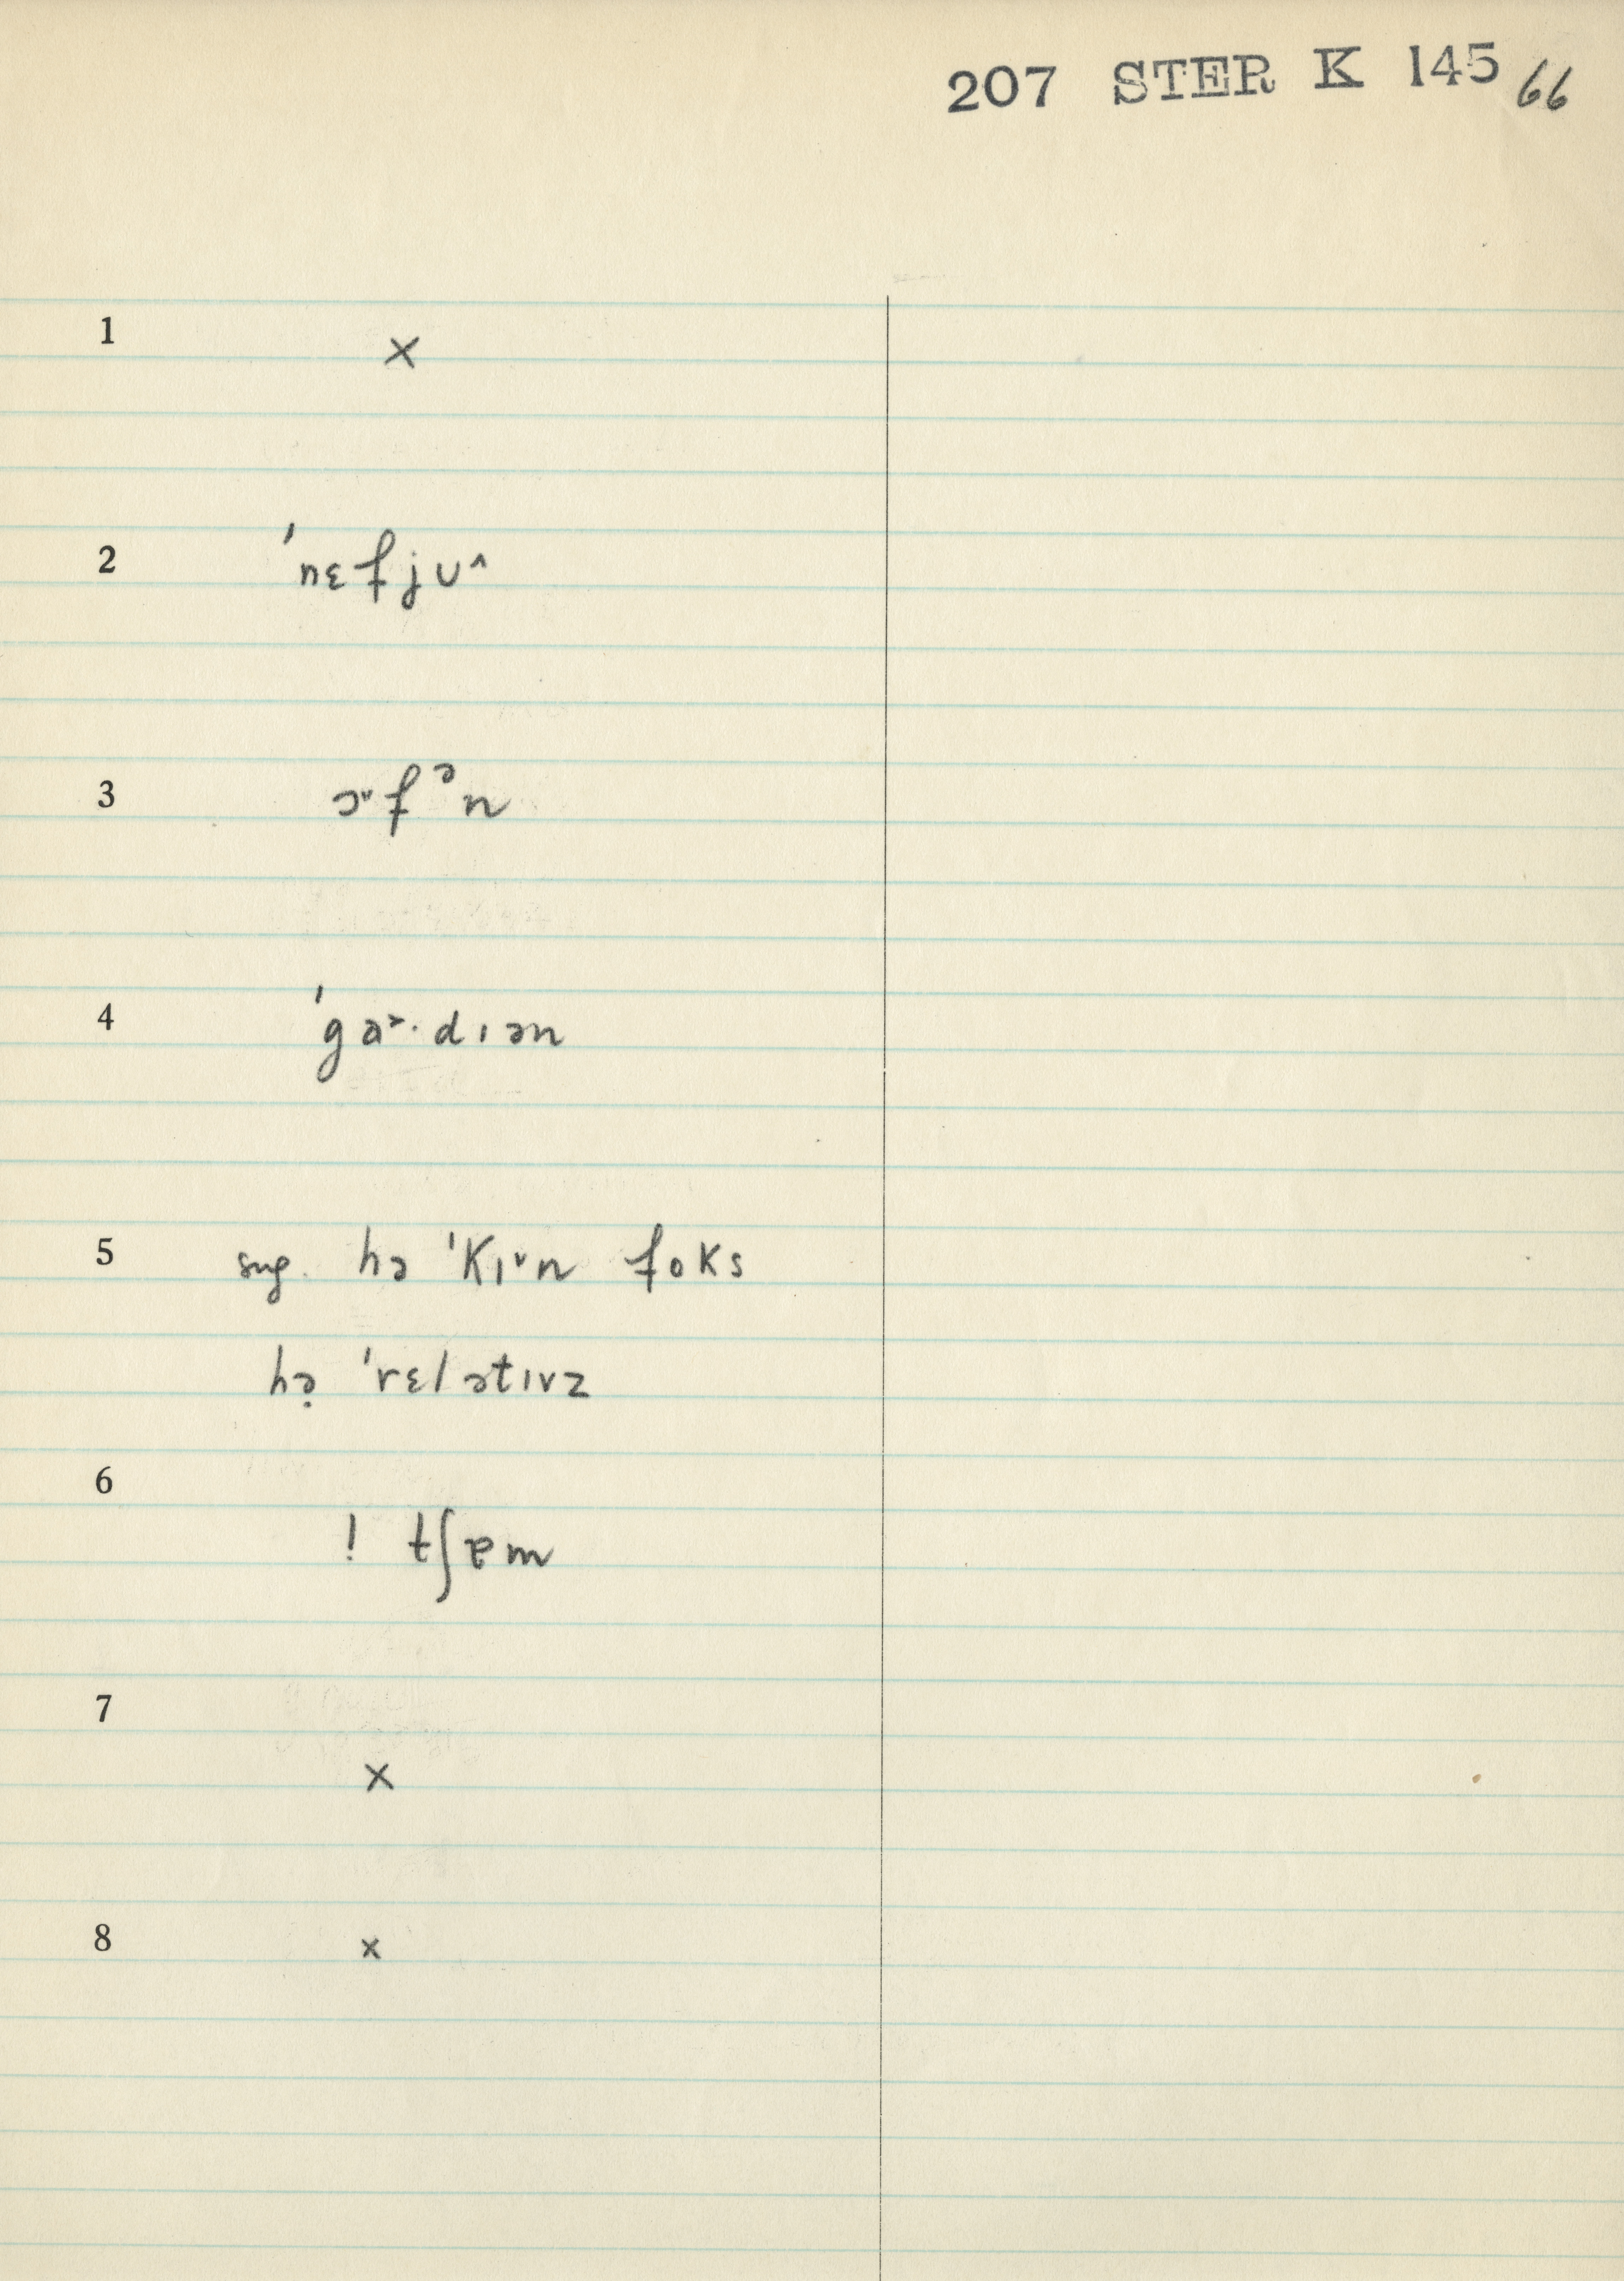 207 STER K 145 66
1 ×
2 ˈnɛfjʊ^
3 ɔ˞fᵊn
4 ˈga˃·dɪən
5 sug. hə ˈkɪ˅n foks
hə̣ ˈrɛlətɪvz
6 ! tʃɐm
7 ×
8 ×